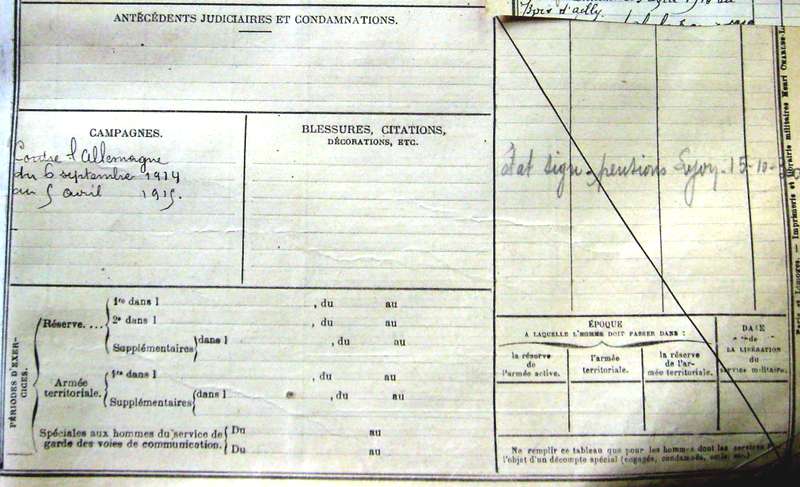 Bois d'ailly
ANTÉCÉDENTS JUDICIAIRES ET CONDAMNATIONS.
CAMPAGNES.
Contre l'Allemagne
du 6 septembre 1914
au 5 avril 1915.
BLESSURES, CITATIONS,
DÉCORATIONS, ETC.
Etat sign. pensions 15-10-
PÉRIODES D'EXER-
CICES.
Réserve....
1re dans l , du au
2e dans l , du au
Supplémentaires dans l , du au
Armée
territoriale.
1re dans l , du au
Supplémentaires dans l , du au
Spéciales aux hommes du service de
garde des voies de communication.
Du au
Du au
ÉPOQUE
A LAQUELLE L'HOMME DOIT PASSER DANS :
la réserve
de
l'armée active.
l'armée
territoriale.
la réserve
de l'ar-
mée territoriale.
DATE
de
LA LIBÉRATION
du
service militaire.
Ne remplir ce tableau que pour les hommes dont les services font
l'objet d'un décompte spécial (engagés, condamnés, omis, etc.)
Paris et Limoges. — Imprimerie et librairie militaires Henri CHARLES-L